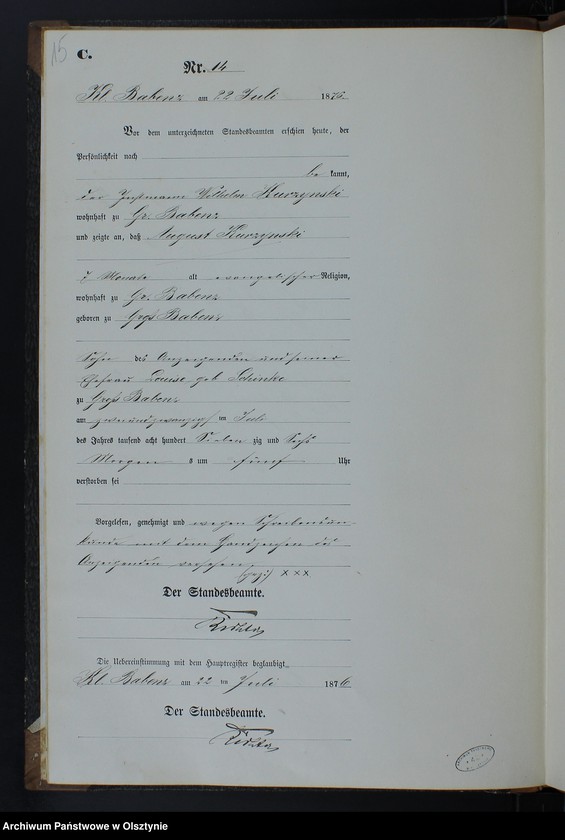 15
C.
Nr. 14
Kl. Babenz am 22 Juli 1876.
Vor dem unterzeichneten Standesbeamten erschien heute, der
Persönlichkeit nach
be kannt,
der Instmann Wilhelm Kurzynski
wohnhaft zu Gr. Babenz
und zeigte an, daß August Kurzynski
7 Monate alt evangelischer Religion,
wohnhaft zu Gr. Babenz
geboren zu Groß Babenz
Sohn des Anzeigenden und seiner
Ehefrau Louise geb Schinke
zu Groß Babenz
am zweiundzwanzigsten Juli
des Jahres tausend acht hundert Sieben zig und Sechs
Morgen s um fünf Uhr
verstorben sei
Vorgelesen, genehmigt und wegen Schreibensun-
kunde mit dem Handzeichen des
Anzeigenden versehen
(gez:) xxx
Der Standesbeamte.
Die Uebereinstimmung mit dem Hauptregister beglaubigt
Kl. Babenz am 22 ten Juli 1876
Der Standesbeamte.
Archiwum Państwowe w Olsztynie